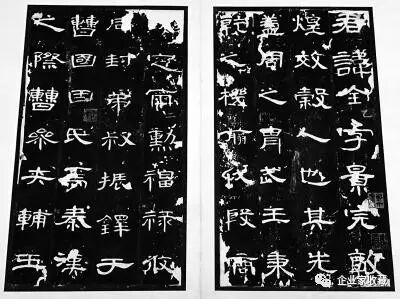 君諱全字景完敦
煌效穀人也其先
蓋周之胄武王秉
乾之機翦伐殷商
定爾勳福祿攸
同封弟叔振鐸于
曹國因氏焉秦漢
之際曹參夾輔王
企业家收藏